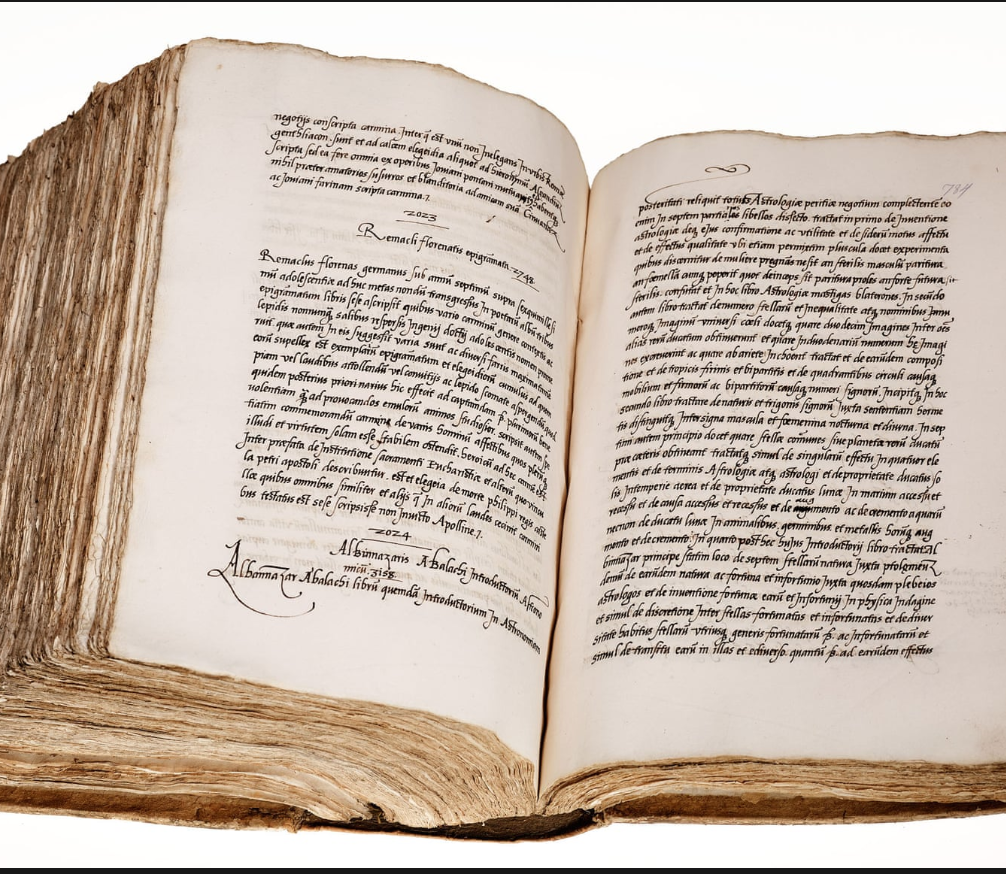 negotijs conscripta carmina. Inter q̃ est vnũ non Inelegans In vrbis Romæ
genethliacon. sunt et ad calcem elegeidia aliquot ad hieronimũ
scripta sed ea fere omnia ex operibus Joviani pontani
nihil præter amatorios susurros et blanditoria ad amiam suã
ac Joviani farinam scripta carmina.
2023
Remacli florenatis epigrāmata. 2748.
Remaclus florenas germanus sub annũ septimũ supra sexquimillesi
mũ adolescentiæ ad huc metas nondũ transgressus In poetarũ albũ tribus
epigrāmatum libris sese ascripsit quibus vario carminũ genere contextis ac
lepidis nonnunq̃ salibus respersis Ingenij docti adolescentis nomen prome
ruit quæ autem In eis suggessit varia sunt ac diversi Juris
piam vel laudibus attollendũ vel convitijs ac lepido scomate
quidem posterius priori narius hic effecit ad captandam
volentiam ad provocandos emulorũ animos studiosior scripsit autem
tiatim commemorandũ carmine de varijs hominũ affectibus quo
illud et virtutem solam esse stabilem ostendit. heroicũ ad hec carmē est
Inter præfata de Institutione sacramenti Eucharistiæ et alterũ quo vincula
la petri apostoli describuntur. est et elegeia de morte philippi regis castel
llæ quibus omnibus similiter et alijs q̃ In aliorũ laudes cecinit
bus testatus est sese scripsisse non Invito Apolline.
2024
Albumazaris Abalachi Introductoriũ
micũ. 3158.
Albumazar Abalachi librũ quendã Introductorium In Astronomiam
784
posteritati reliquit totius Astrologiæ peritiæ negotium complectentē eo
enim In septem partiales libellos dissecto. tractat in primo de Inventione
astrologiæ deq̃ ejus confirmatione ac vtilitate et de siderũ motus affectu
et de effectus qualitate vbi etiam permixtim pluscula docet experimenta
quibus discernitur de muliere pregnãs ne sit an sterilis masculũ paritura
an fœmellã aut peperit quot deinceps sit paritura proles an forte futura
sterilis. confutat et In hoc libro Astrologiæ mastigas blaterones. In secũdo
autem libro tractat de numero stellarũ et Inequalitate atq̃ nominibus
Imaginũ vniversi coeli docetq̃ quare duodecim Imagines Inter oẽs
alias rerũ ducatum obtinuerint et quare In duodenariũ numerum hę Imagi
nes excreverint ac quare ab ariete Inchoent tractat et de earũdem composi
tione et de tropicis firmis et bipartitis et de quadrantibus circuli causisq̃
mobilium et firmorũ ac bipartitorũ causisq̃ numeri signorũ. Incipitq̃ In hoc
secundo libro tractare de naturis et trigonis signorũ Juxta sententiam herme
tis distinguitq̃ Inter signa mascula et fœmenina nocturna et diurna. In ter
tiũ autem principio docet quare stellæ comunes sive planetæ rerũ ducatũ
præ cæteris obtineant tractatq̃ simul de singularũ effectu In quatuor ele
mentis et de terminis Astrologiæ atq̃ astrologi et de proprietate ducatus so
lis Intemperie aerea et de proprietate ducatus lunæ In marium accessu et
recessu et de causa accessus et recessus et de augmento ac decremento aquarũ
necnon de ducatu lunæ In animalibus, germinibus et metallis horũq̃ aug
mento et decremento. In quarto post hec hujus Introductorij libro tractat Al
bumazar principe statim loco de septem stellarũ natura Juxta ptolomeũ
demũ de earũdem natura ac fortuna et infortunio Juxta quosdam plebeios
astrologos et de inventione fortunæ earũ et Infortunij In physica Indagine
et simul de discretione Inter stellas fortunatas et infortunatas et de diuer
sitate habitus stellarũ vtriusq̃ generis fortunatarũ s. ac Infortunatarũ et
simul de transitu earũ in illas et ediverso. quantũ s. ad earũdem effectus